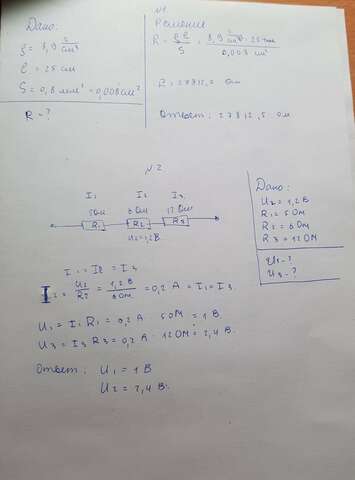 №1
Дано:
ρ = 8,9 г/см³
l = 25 см
S = 0,8 мм² = 0,008 см²
R - ?
Решение
R = ρl/S = 8,9 г/см³ · 25 см / 0,008 см²
R = 27812,5 Ом
Ответ: 27812,5 Ом
№2
I₁ I₂ I₃
5 Ом 6 Ом 12 Ом
R₁ R₂ R₃
U₂ = 1,2 В
Дано:
U₂ = 1,2 В
R₁ = 5 Ом
R₂ = 6 Ом
R₃ = 12 Ом
U₁ - ?
U₃ - ?
I₁ = I₂ = I₃
I₂ = U₂/R₂ = 1,2 В/6 Ом = 0,2 А = I₁ = I₃
U₁ = I₁ R₁ = 0,2 А · 5 Ом = 1 В
U₃ = I₃ R₃ = 0,2 А · 12 Ом = 2,4 В.
Ответ: U₁ = 1 В
U₂ = 2,4 В.